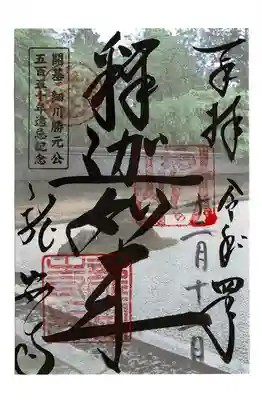 奉拝 令和四年
十一月十一日
釋迦如来
開基 細川勝元公
五百五十年遠忌記念
龍安寺